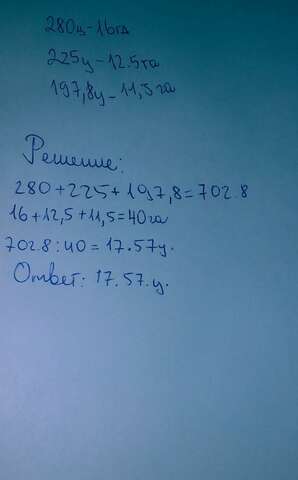 280ц-16га
225ц-12.5га
197,8ц-11,5га
Решение:
280+225+197,8=702.8
16+12,5+11,5=40га
702.8:40=17.57ц.
Ответ: 17.57.ц.